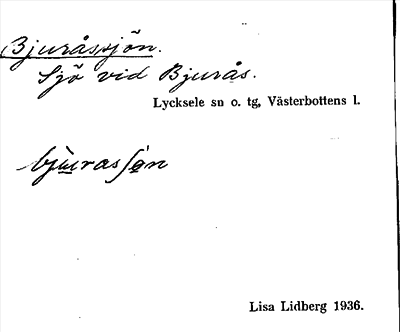 Bjuråssjön.
Sjö vid Bjurås.
Lycksele sn o. tg, Västerbottens l.
bjùrasʃø̀n
Lisa Lidberg 1936.